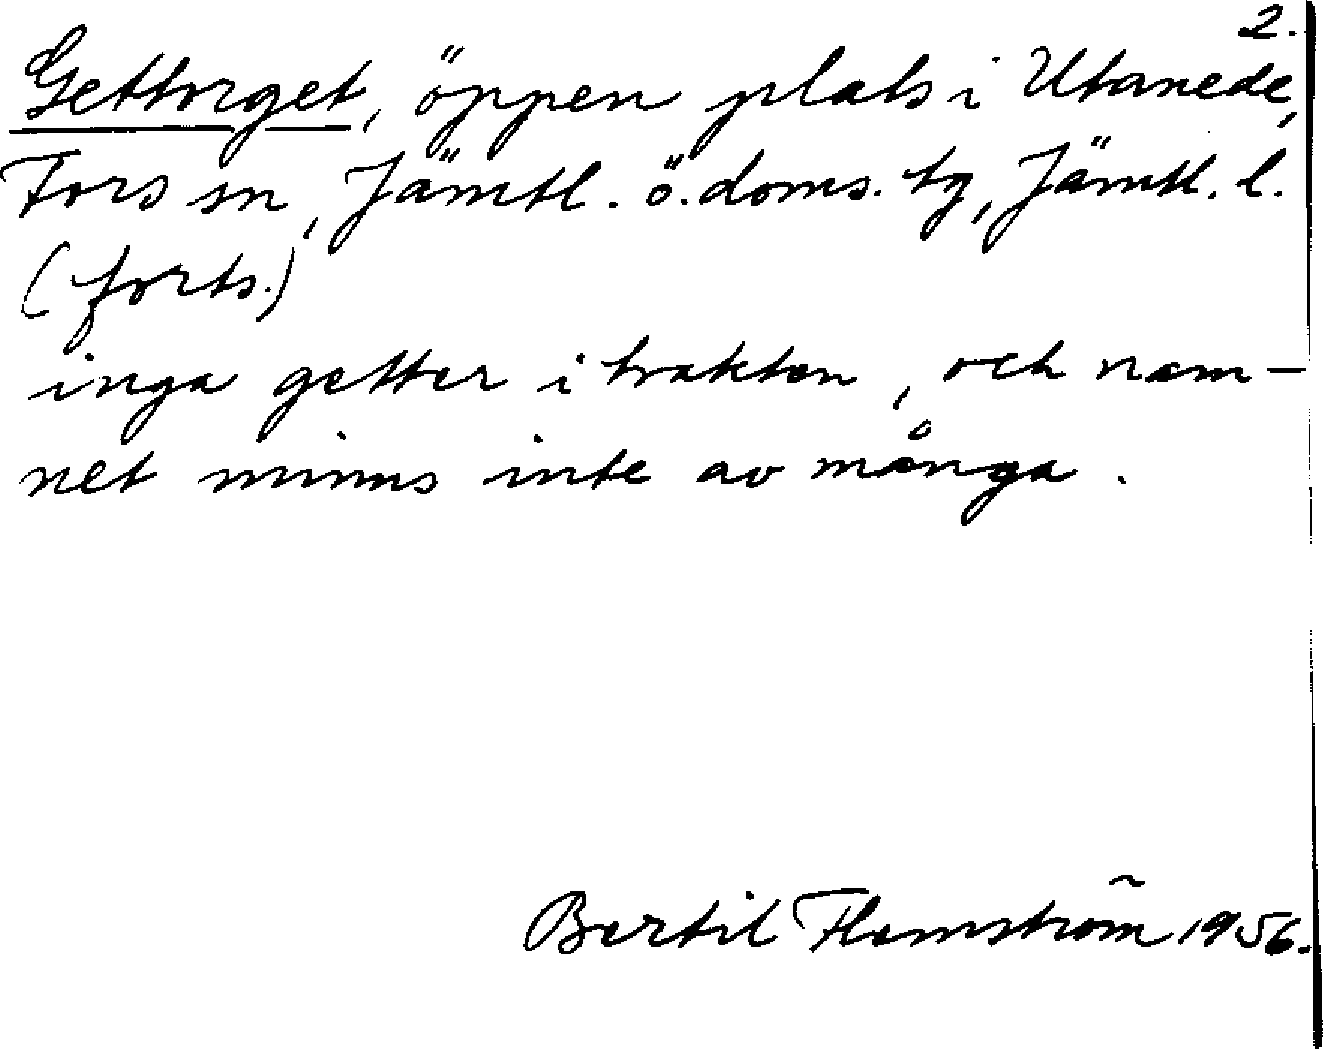 2.
Gettorget, öppen plats i Utanede,
Fors sn, Jämtl. ö. doms. tg, Jämtl. l.
(forts.)
inga getter i trakten, och nam-
net minns inte av många.
Bertil Flemström 1956.